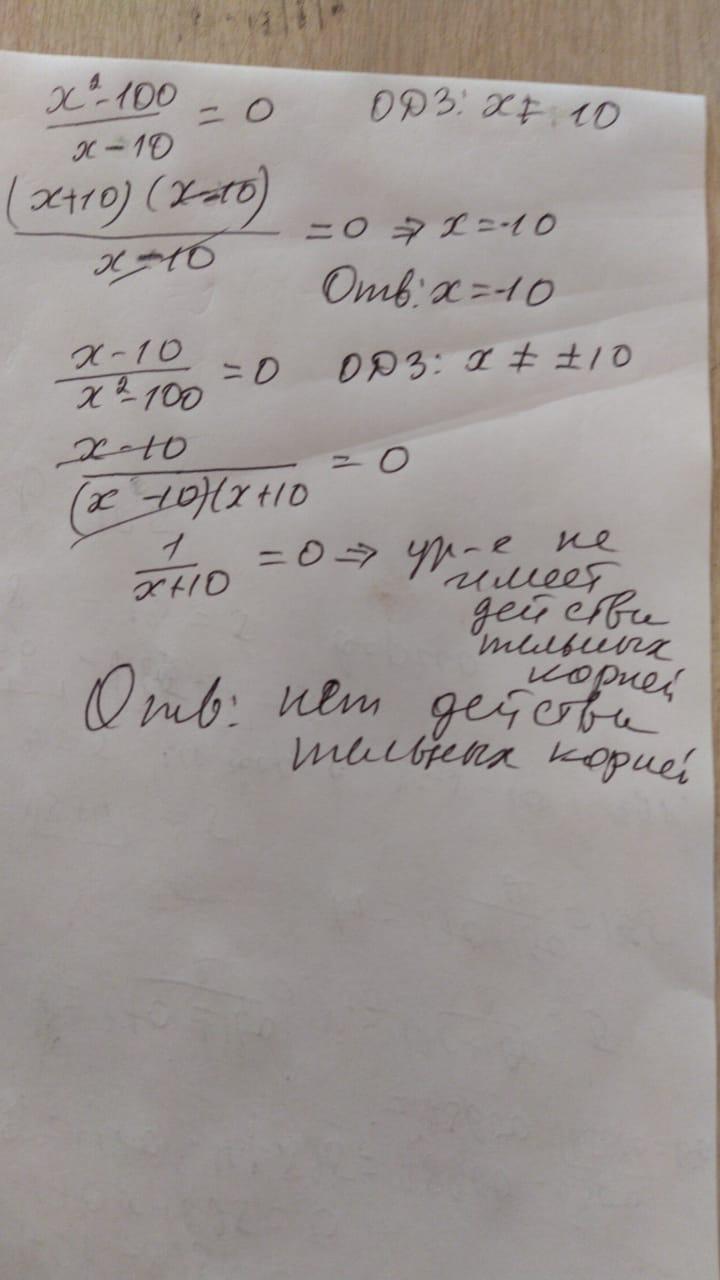 x²-100 / x-10 = 0 ОДЗ: x ≠ 10
(x+10)(x-10) / x-10 = 0 ⇒ x=-10
Отв: x=-10
x-10 / x²-100 = 0 ОДЗ: x ≠ ±10
x-10 / (x-10)(x+10 = 0
1 / x+10 = 0 ⇒ ур-е не
имеет
действи
тельных
корней
Отв: нет действи
тельных корней